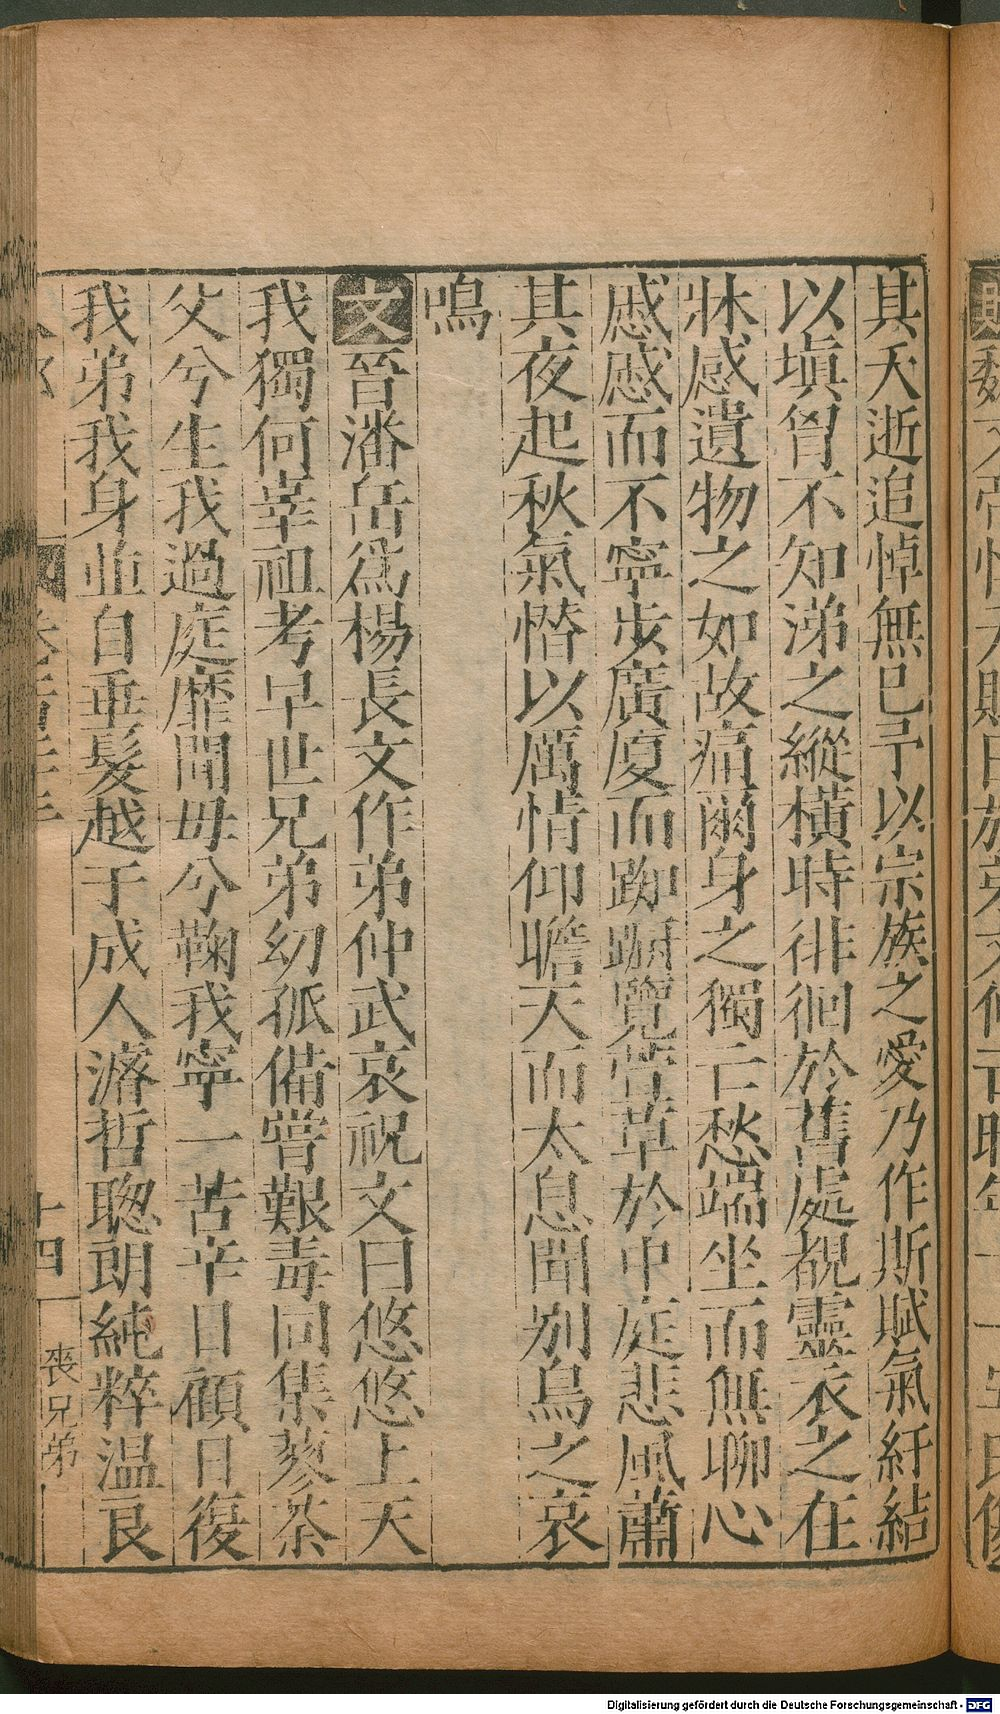 其夭逝追悼無已予以宗族之愛乃作斯賦氣紆結
以塡胷不知涕之縱橫時徘徊於舊處覩靈衣之在
牀感遺物之如故痛爾身之獨亡愁端坐而無聊心
慼慼而不寧步廣廈而踟蹰覽萱草於中庭悲風蕭
其夜起秋氣憯以厲情仰瞻天而太息聞別鳥之哀
鳴
文晉潘岳爲楊長文作弟仲武哀祝文曰悠悠上天
我獨何辜祖考早世兄弟幼孤備嘗艱毒同集蓼荼
父兮生我過庭靡聞毋兮鞠我寧一苦辛日顧日復
我弟我身並自垂髮越于成人濬哲聰朗純粹溫良
十四
喪兄弟
Digitalisierung gefördert durch die Deutsche Forschungsgemeinschaft - DFG